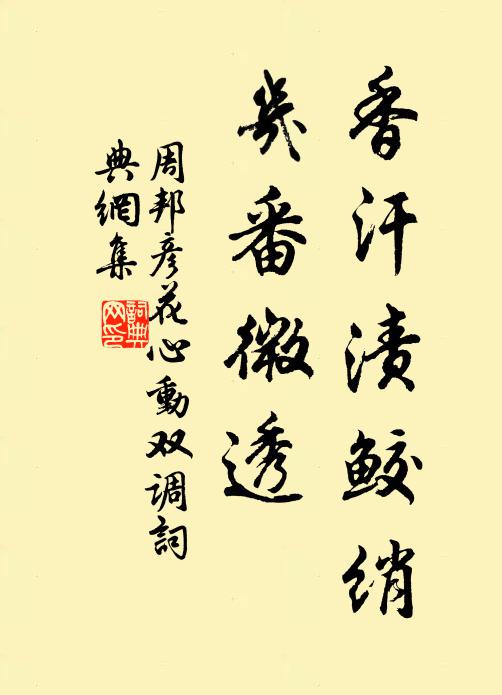 香汗漬鲛绡
幾番微透
周邦彦花心動双调詞
典網集
詞典网印